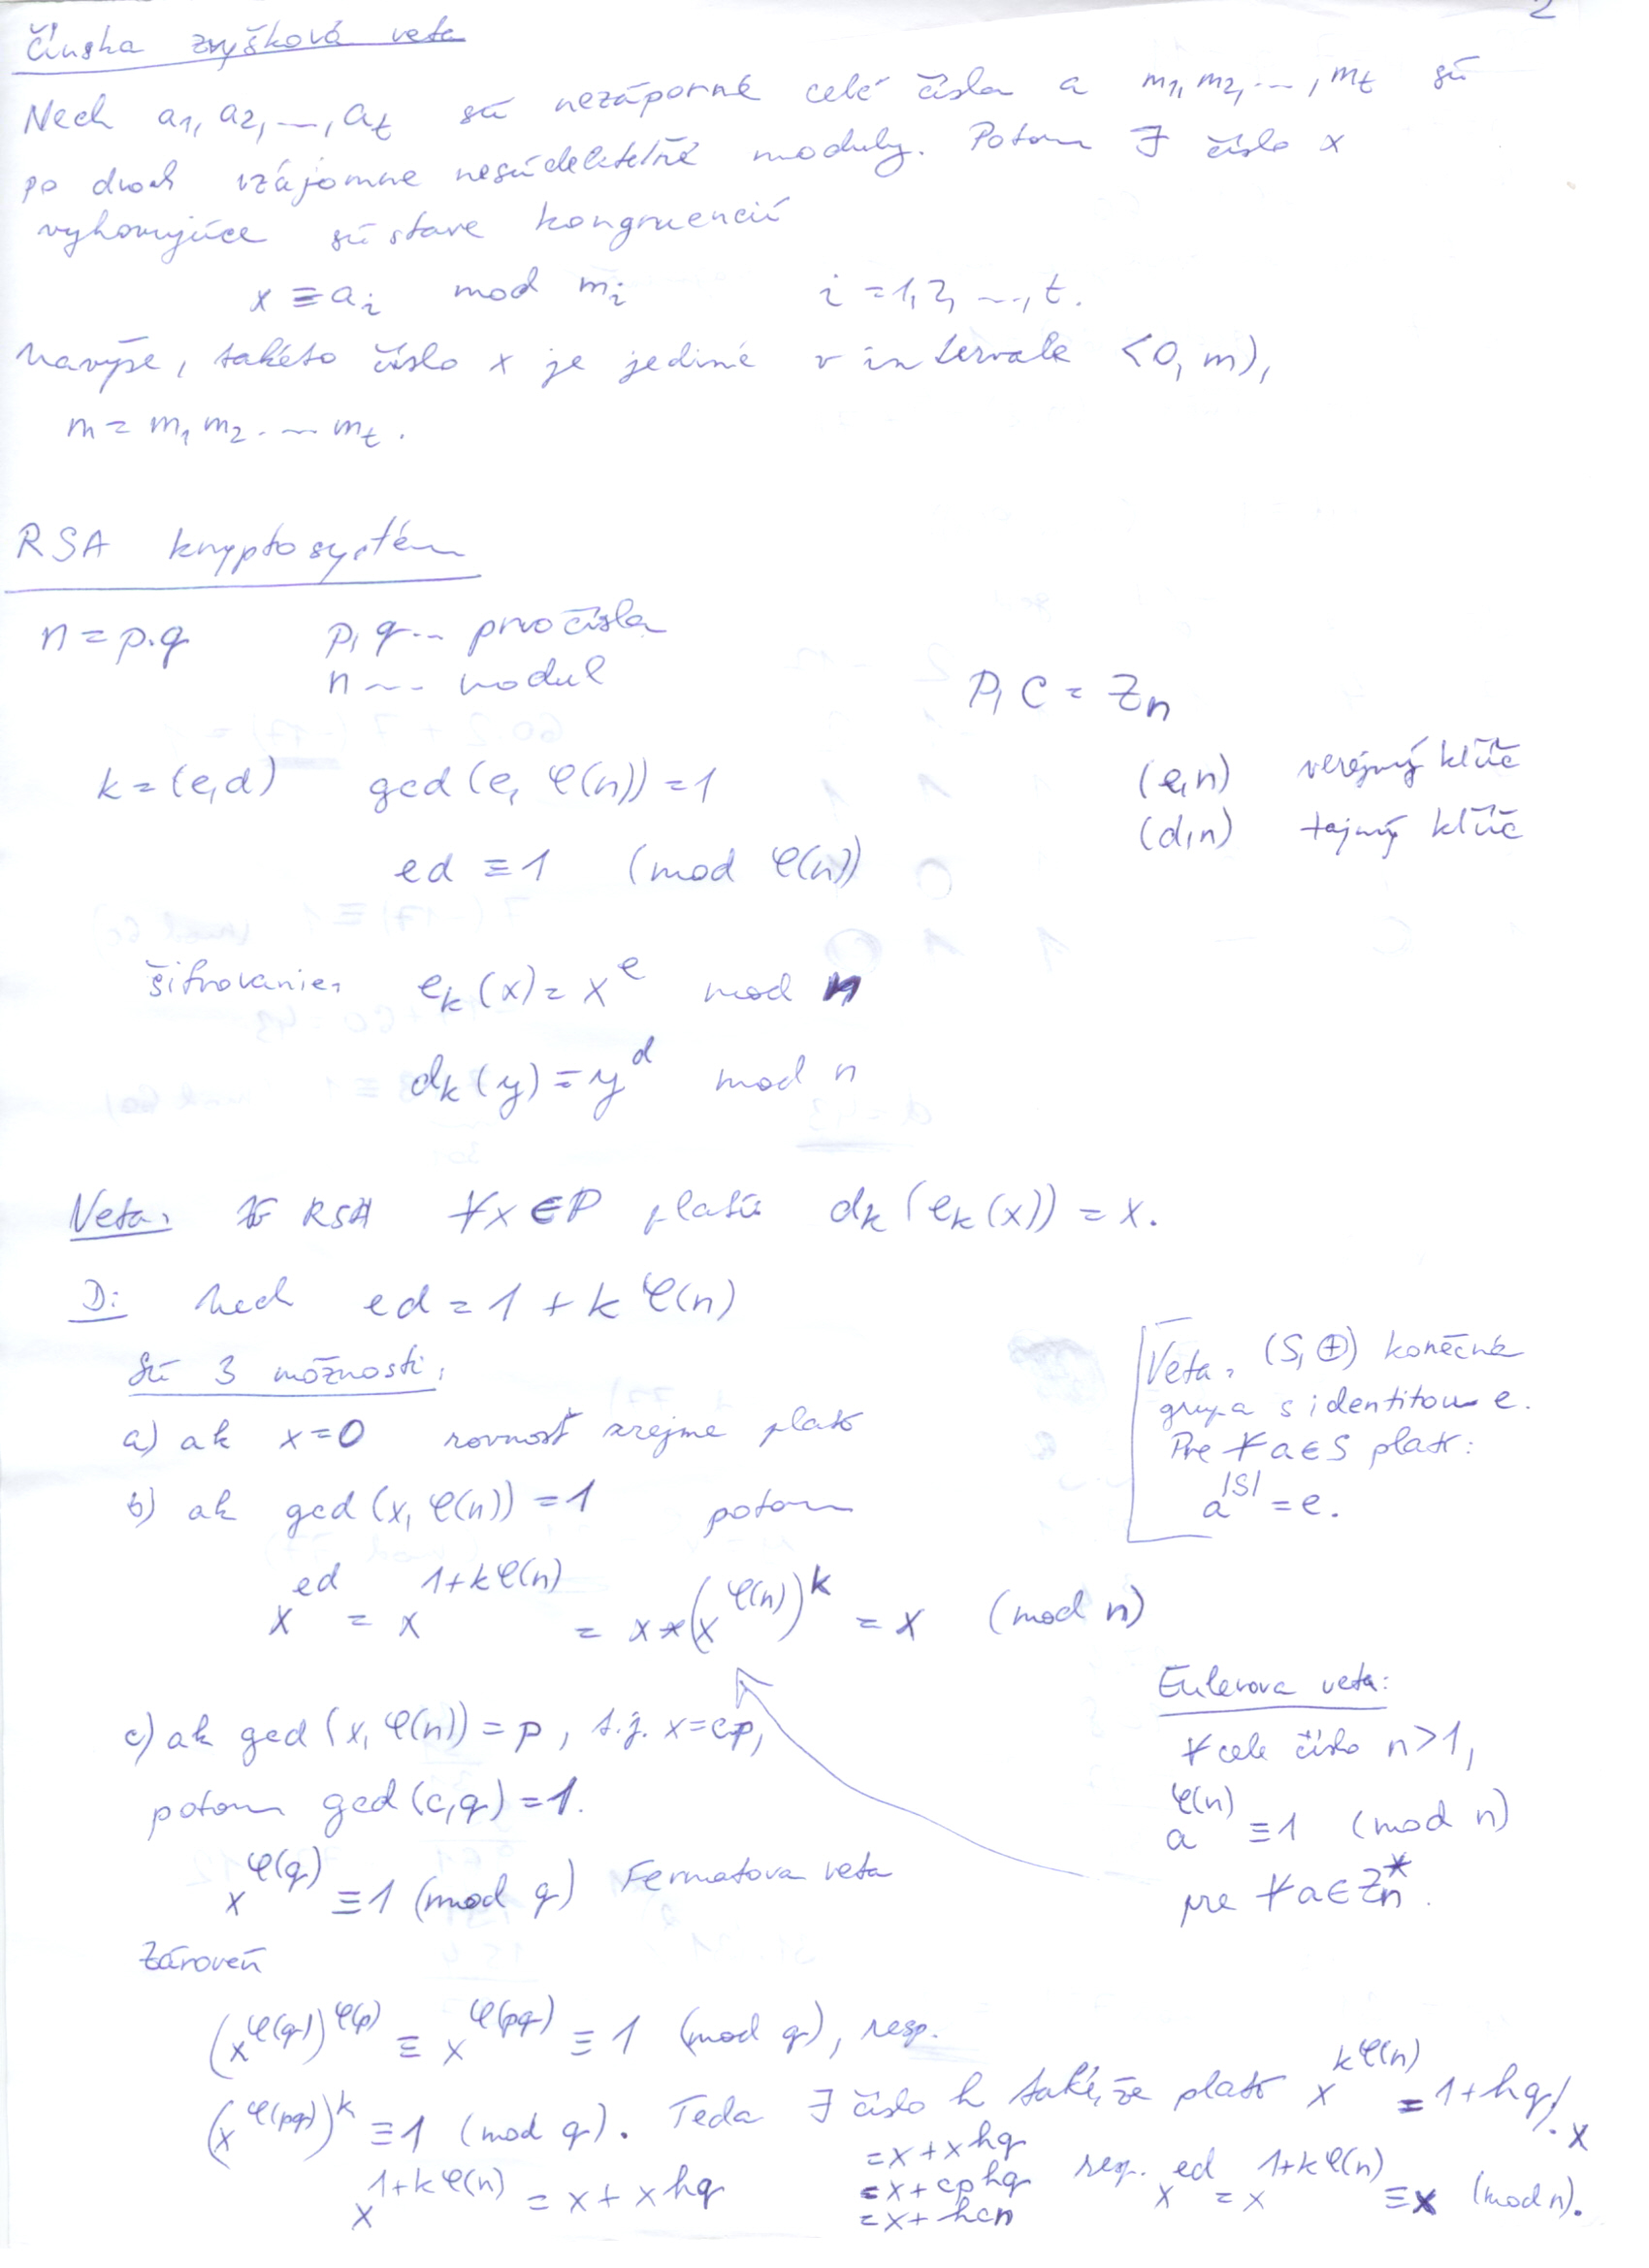 2
Čínska zvyšková veta
Nech a1, a2, ..., at sú nezáporné celé čísla a m1, m2, ..., mt sú
po dvoch vzájomne nesúdeliteľné moduly. Potom ∃ číslo x
vyhovujúce sústave kongruencií
x ≡ ai mod mi i = 1, 2, ..., t.
Navyše, takéto číslo x je jediné v intervale <0, m),
m = m1 m2 . ... mt.
RSA kryptosystém
n = p.q p, q ... prvočísla
n ... modul
P, C = Zn
k = (e, d) gcd (e, φ(n)) = 1
(e, n) verejný kľúč
ed ≡ 1 (mod φ(n))
(d, n) tajný kľúč
šifrovanie: ek(x) = x^e mod n
dk(y) = y^d mod n
Veta: V RSA ∀x ∈ P platí dk(ek(x)) = x.
D: Nech ed = 1 + k φ(n)
Sú 3 možnosti:
a) ak x = 0 rovnosť zrejme platí
b) ak gcd (x, φ(n)) = 1 potom
x^ed = x^(1+kφ(n)) = x * (x^φ(n))^k = x (mod n)
Veta: (S, ⊕) konečná
grupa s identitou e.
Pre ∀ a ∈ S platí:
a^|S| = e.
c) ak gcd (x, φ(n)) = p, t.j. x = cp,
potom gcd (c, q) = 1.
x^φ(q) ≡ 1 (mod q) Fermatova veta
Eulerova veta:
∀ celé číslo n > 1,
a^φ(n) ≡ 1 (mod n)
pre ∀ a ∈ Zn*.
Zároveň
(x^φ(q))^φ(p) ≡ x^φ(pq) ≡ 1 (mod q), resp.
(x^φ(pq))^k ≡ 1 (mod q). Teda ∃ číslo h také, že platí x^kφ(n) = 1 + hq /. x
x^(1+kφ(n)) = x + x hq
= x + x hq
= x + cp hq
= x + hcn
resp. x^ed = x^(1+kφ(n)) ≡ x (mod n).